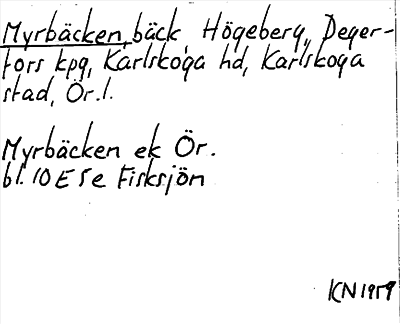 Myrbäcken, bäck, Högeberg, Deger-
fors kpg, Karlskoga hd, Karlskoga
stad, Ör.l.
Myrbäcken ek Ör.
bl. 10 E 5 e Fisksjön
KN 1959